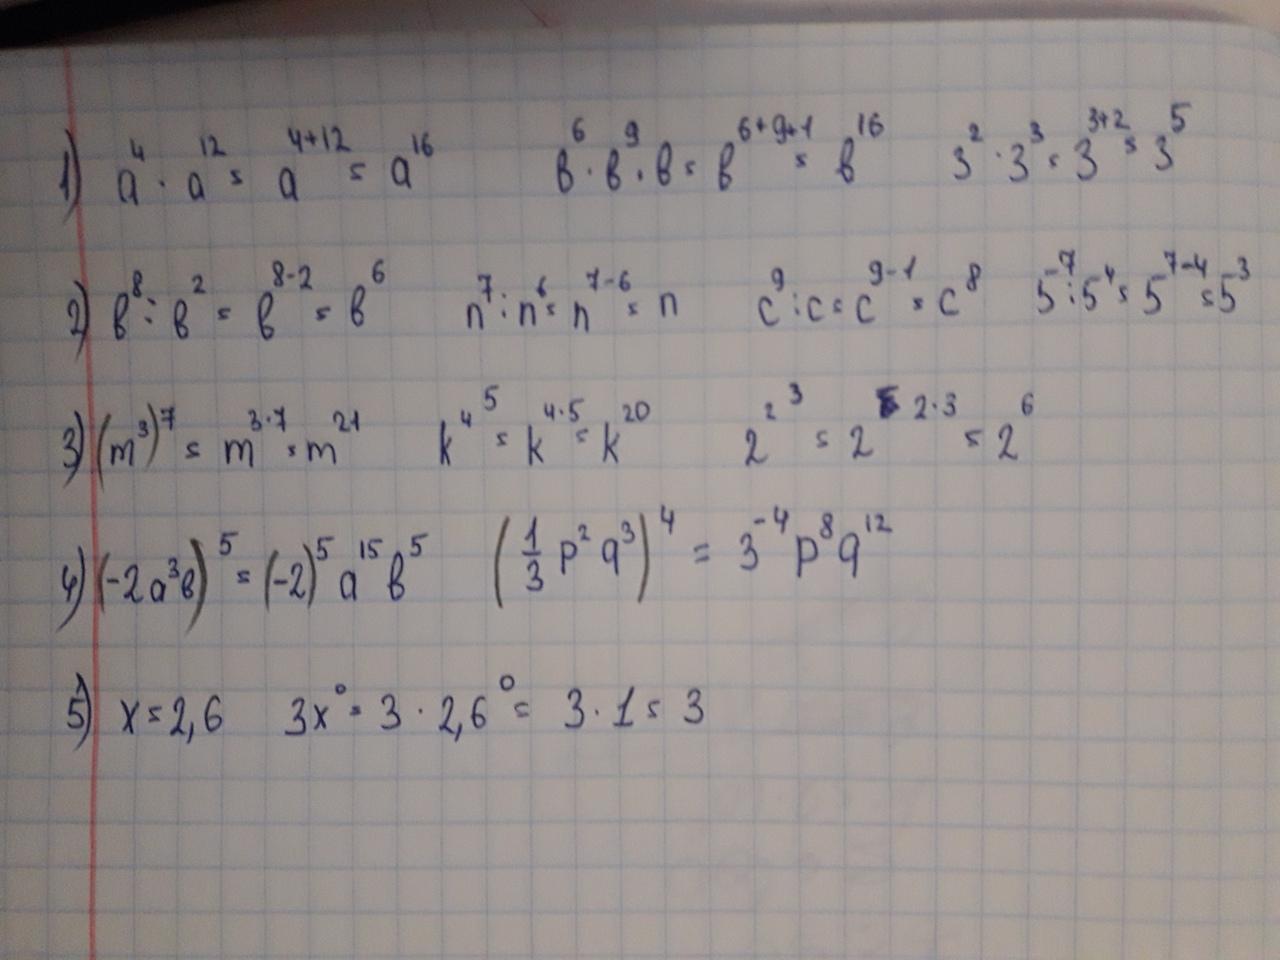 1) a⁴ · a¹² = a⁴⁺¹² = a¹⁶ в⁶ · в⁹ · в = в⁶⁺⁹⁺¹ = в¹⁶ 3² · 3³ = 3³⁺² = 3⁵
2) в⁸ : в² = в⁸⁻² = в⁶ n⁷ : n⁶ = n⁷⁻⁶ = n c⁹ : c = c⁹⁻¹ = c⁸ 5⁷ : 5⁴ = 5⁷⁻⁴ = 5³
3) (m³)⁷ = m^(3·7) = m²¹ k^4^5 = k^(4·5) = k²⁰ 2^2^3 = 2^(2·3) = 2⁶
4) (-2a³в)⁵ = (-2)⁵ a¹⁵ в⁵ (1/3 p² q³)⁴ = 3⁻⁴ p⁸ q¹²
5) x = 2,6 3x⁰ = 3 · 2,6⁰ = 3 · 1 = 3